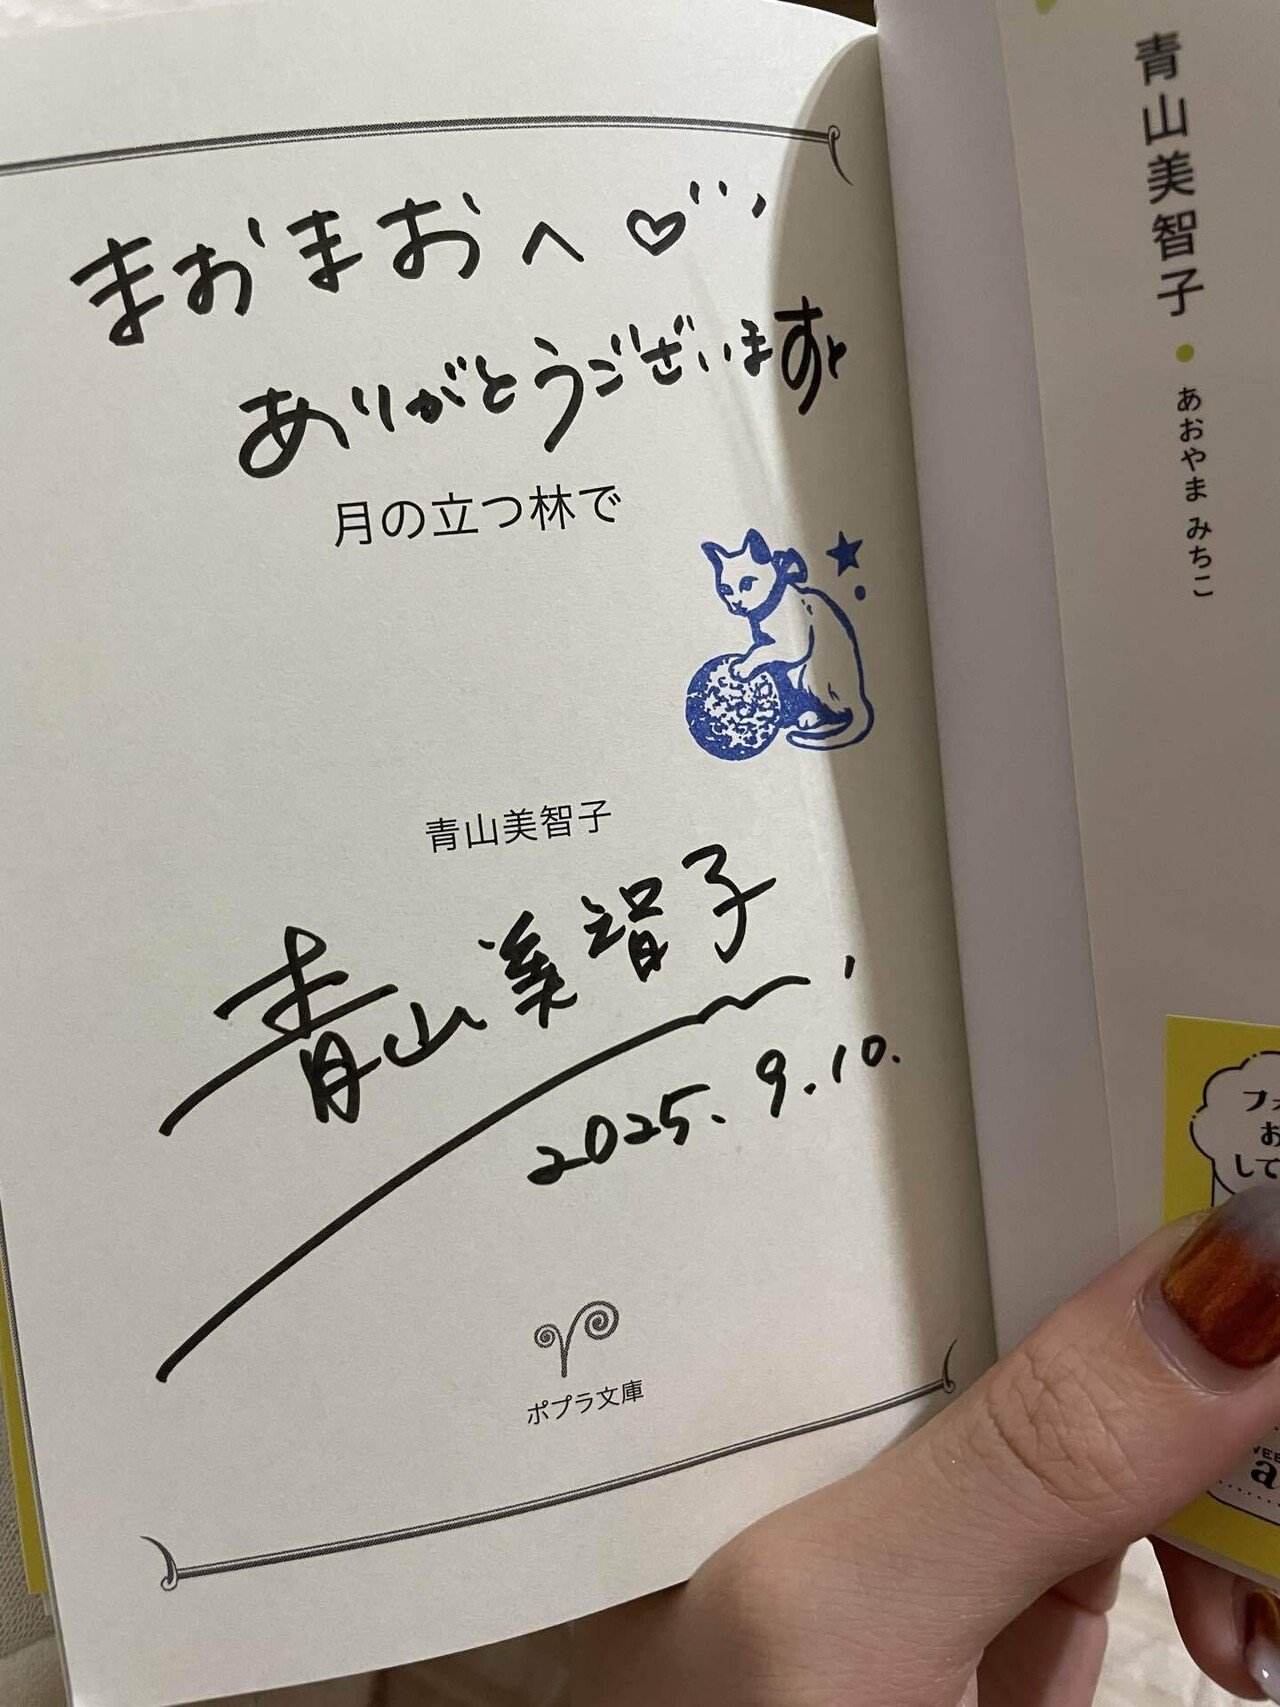 まおまおへ♡
ありがとうございます
月の立つ林で
青山美智子
青山美智子
2025.9.10.
ポプラ文庫
青山美智子・あおやま みちこ
フォ
お
して